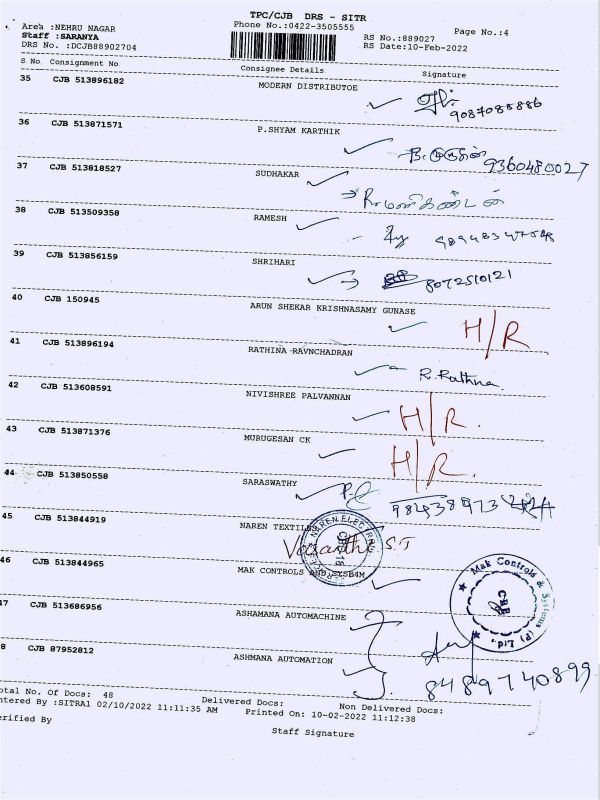 TPC/CJB DRS - SITR
Area :NEHRU NAGAR
Phone No.:0422-3505555
Page No.:4
Staff :SARANYA
RS No.:889027
DRS No. :DCJB88902704
RS Date:10-Feb-2022
S No. Consignment No
Consignee Details
Signature
35 CJB 513896182 MODERN DISTRIBUTOE
9087088886
36 CJB 513871571 P.SHYAM KARTHIK
9360480027
37 CJB 513818527 SUDHAKAR
R. மணிகண்டன்
38 CJB 513509358 RAMESH
39 CJB 513856159 SHRIHARI
8072510121
40 CJB 150945 ARUN SHEKAR KRISHNASAMY GUNASE
H/R
41 CJB 513896194 RATHINA RAVNCHADRAN
R. Rathna
42 CJB 513608591 NIVISHREE PALVANNAN
H/R.
43 CJB 513871376 MURUGESAN CK
H/R.
44 CJB 513850558 SARASWATHY
45 CJB 513844919 NAREN TEXTILE
Vasantha S.J
46 CJB 513844965 MAK CONTROLS AND SYSB4M
Mak Controls & Systems (P) Ltd.
CBE
47 CJB 513686956 ASHAMANA AUTOMACHINE
8 CJB 87952812 ASHMANA AUTOMATION
8489740899
otal No. of Docs: 48
Delivered Docs:
Non Delivered Docs:
ntered By :SITRA1 02/10/2022 11:11:35 AM
Printed On: 10-02-2022 11:12:38
erified By
Staff Signature